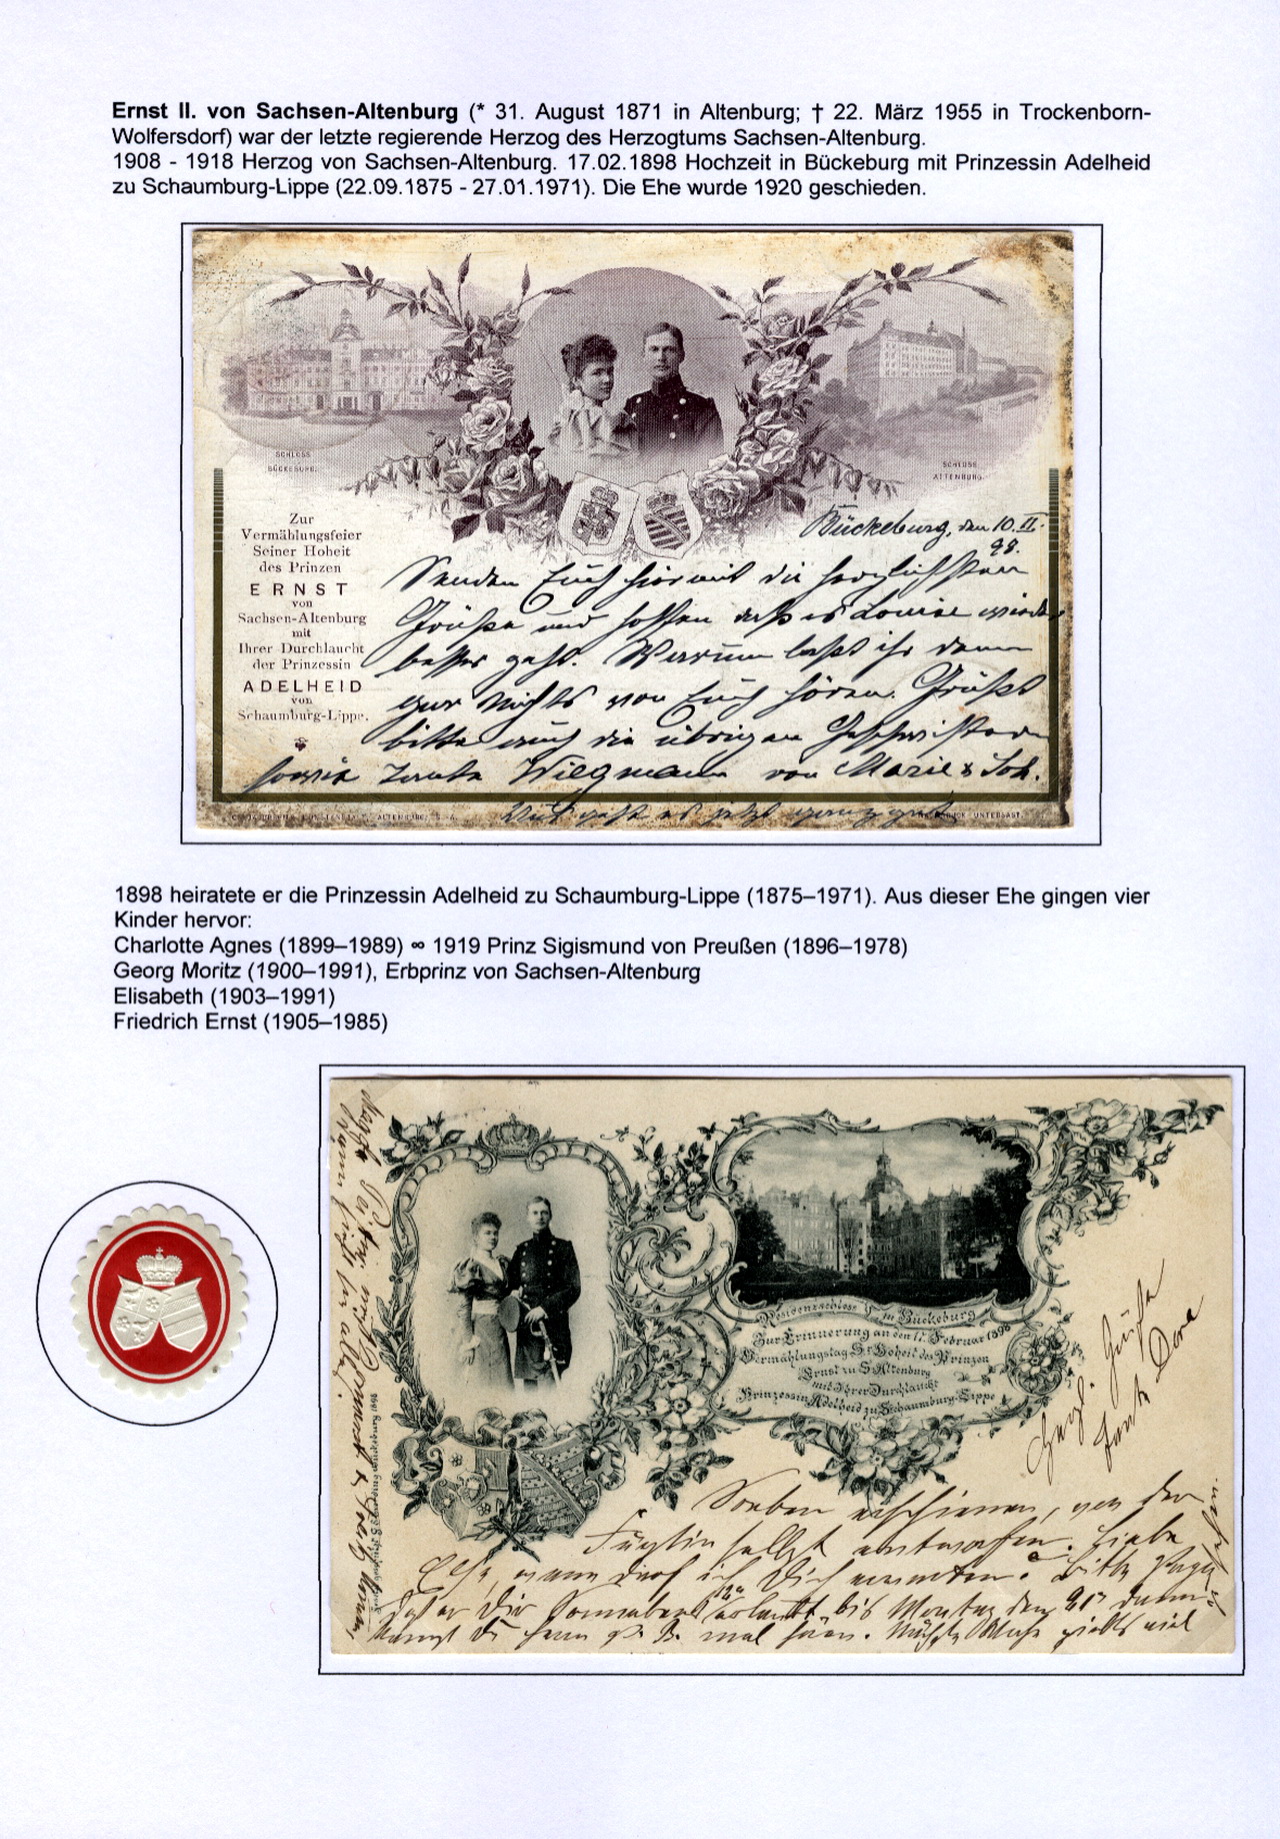 Ernst II. von Sachsen-Altenburg (* 31. August 1871 in Altenburg; † 22. März 1955 in Trockenborn-
Wolfersdorf) war der letzte regierende Herzog des Herzogtums Sachsen-Altenburg.
1908 - 1918 Herzog von Sachsen-Altenburg. 17.02.1898 Hochzeit in Bückeburg mit Prinzessin Adelheid
zu Schaumburg-Lippe (22.09.1875 - 27.01.1971). Die Ehe wurde 1920 geschieden.
SCHLOSS
BÜCKEBURG.
SCHLOSS
ALTENBURG.
Zur
Vermählungsfeier
Seiner Hoheit
des Prinzen
ERNST
von
Sachsen-Altenburg
mit
Ihrer Durchlaucht
der Prinzessin
ADELHEID
von
Schaumburg-Lippe.
Bückeburg, den 10. II.
98.
Senden Euch hiermit die herzlichsten
Grüße und hoffen daß es Louise wieder
besser geht. Warum laßt ihr denn
gar nichts von Euch hören. Grüßt
bitte auch die übrigen Geschwister
sowie Tante Wiegmann von Marie & Joh.
geht es jetzt ganz gut
1898 heiratete er die Prinzessin Adelheid zu Schaumburg-Lippe (1875–1971). Aus dieser Ehe gingen vier
Kinder hervor:
Charlotte Agnes (1899–1989) ∞ 1919 Prinz Sigismund von Preußen (1896–1978)
Georg Moritz (1900–1991), Erbprinz von Sachsen-Altenburg
Elisabeth (1903–1991)
Friedrich Ernst (1905–1985)
Residenzschloss in Bückeburg
Zur Erinnerung an den 17. Februar 1898
Vermählungstag Sr. Hoheit des Prinzen
Ernst zu S.-Altenburg
mit Ihrer Durchlaucht
Prinzessin Adelheid zu Schaumburg-Lippe
Herzl. Grüße
Tante Dora
Soeben erschienen, von der
Fürstin selbst entworfen. Liebe
Else, wann darf ich Dich erwarten? Bitte
Dir Sonnabend erlaubt bis Montag den